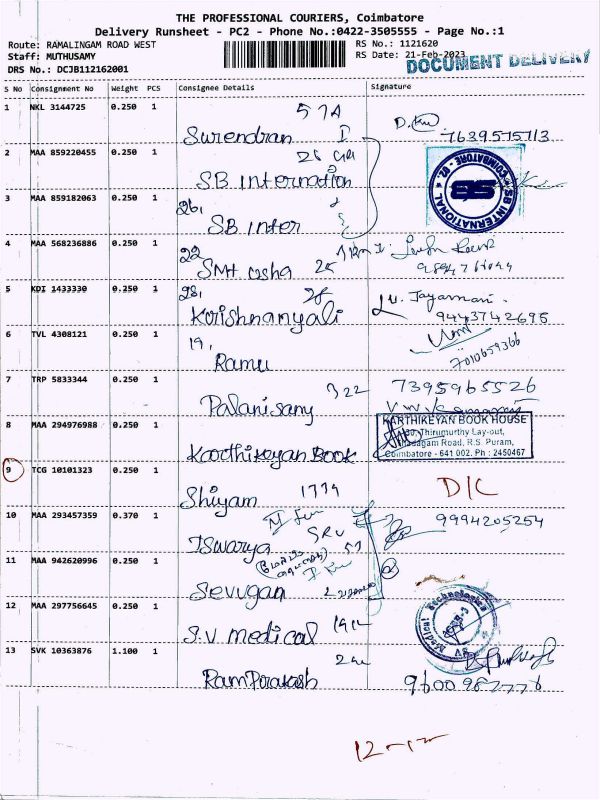 THE PROFESSIONAL COURIERS, Coimbatore
Delivery Runsheet - PC2 - Phone No.:0422-3505555 - Page No.:1
Route: RAMALINGAM ROAD WEST RS No.: 1121620
Staff: MUTHUSAMY RS Date: 21-Feb-2023
DRS No.: DCJB112162001 DOCUMENT DELIVERY
S No Consignment No Weight PCS Consignee Details Signature
1 NKL 3144725 0.250 1 57A
Surendran 7639575713
2 MAA 859220455 0.250 1 26
SB Internation
SB INTERNATIONAL COIMBATORE - 02. SB
3 MAA 859182063 0.250 1 26,
SB Inter
4 MAA 568236886 0.250 1 22
SMt usha 25
5 KDI 1433330 0.250 1 28,
Krishnanyali Jayamani. 9443742695
6 TVL 4308121 0.250 1 19,
Ramu 7010659366
7 TRP 5833344 0.250 1 322 7395965526
Palanisany
8 MAA 294976988 0.250 1 KARTHIKEYAN BOOK HOUSE
Thirumurthy Lay-out,
Road, R.S. Puram,
Coimbatore - 641 002. Ph : 2450467
Karthikeyan Book
9 TCG 10101323 0.250 1
Shiyam 1779 D/C
10 MAA 293457359 0.370 1 9994205254
Iswarya 57
11 MAA 942620996 0.250 1
Sevugan
12 MAA 297756645 0.250 1
S.V medical 191L
SV Medical Technologies
13 SVK 10363876 1.100 1
Ram Prakash